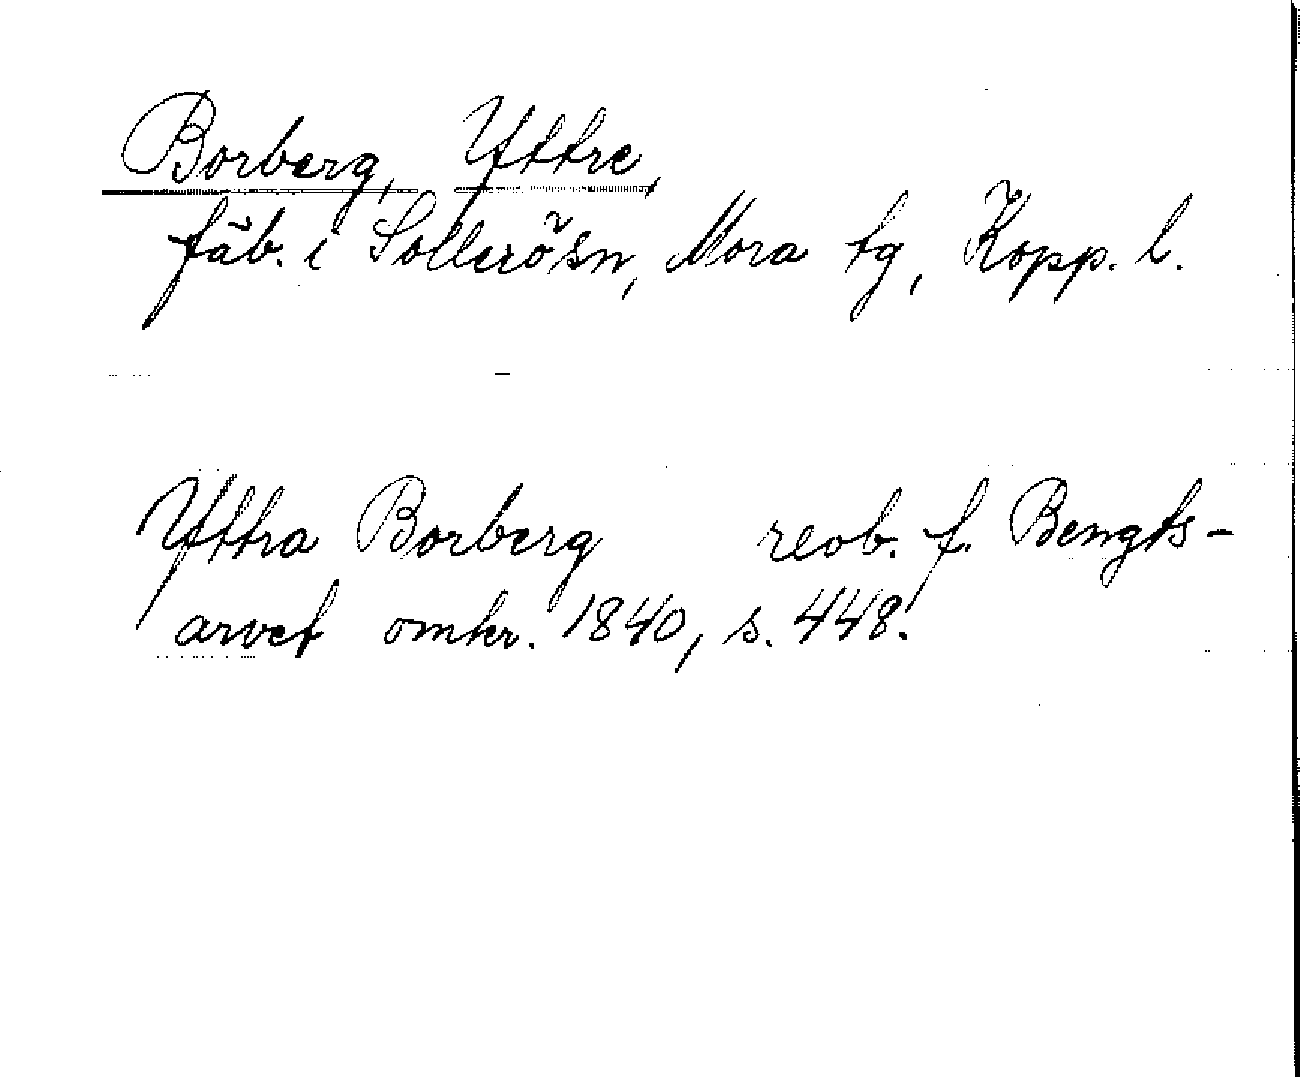 Borberg, Yttre,
fäb. i Sollerösn, Mora tg, Kopp. l.
Yttra Borberg reob. f. Bengts-
arvet omkr. 1840, s. 448.